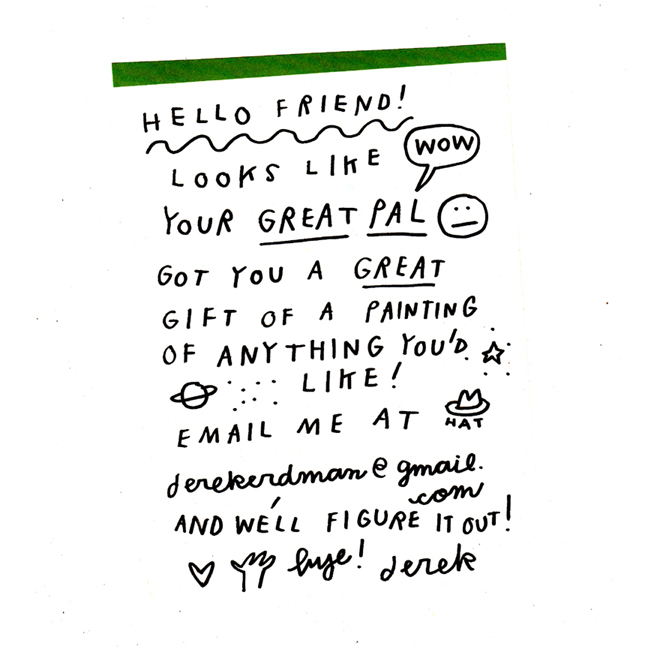 HELLO FRIEND!
WOW
LOOKS LIKE
YOUR GREAT PAL
GOT YOU A GREAT
GIFT OF A PAINTING
OF ANYTHING YOU'D
LIKE!
EMAIL ME AT
HAT
derekerdman@gmail.
com
AND WE'LL FIGURE IT OUT!
bye! derek